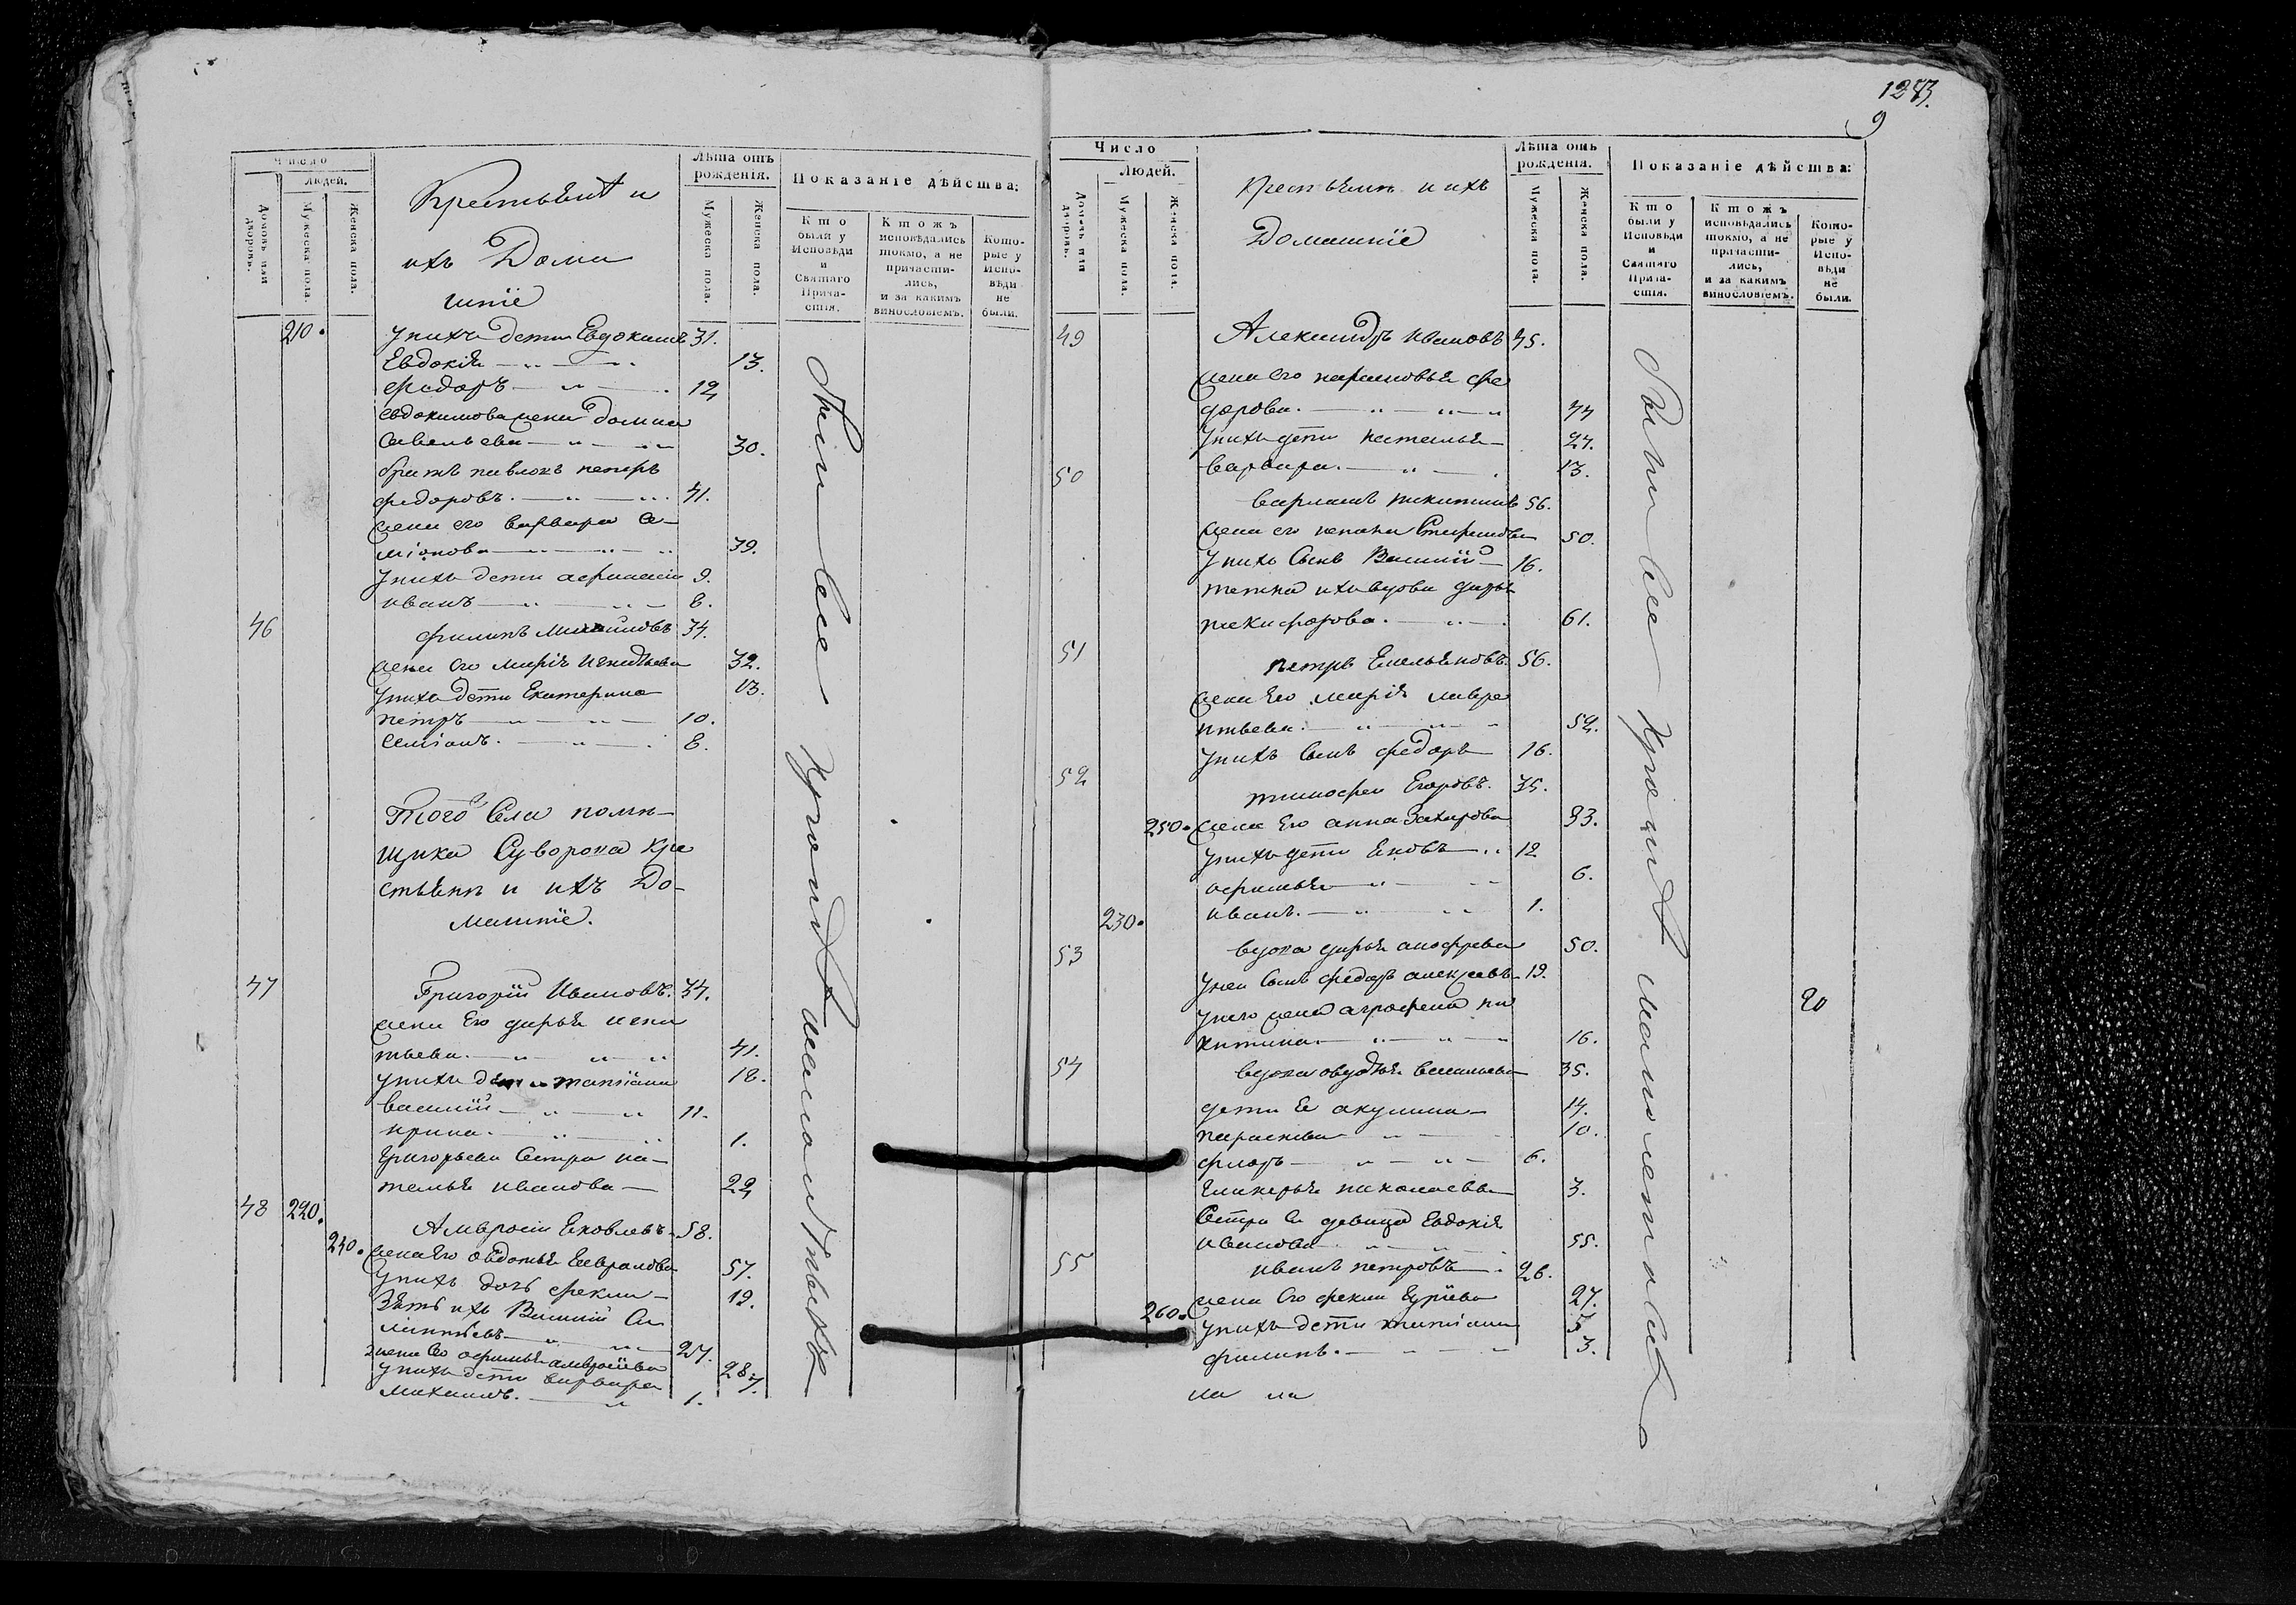 1273.
9
Число
Людей.
Домовъ или дворовъ.
Мужеска пола.
Женска пола.
Крестьянѣ и
ихъ Дома
шніе
Лѣта отъ рожденія.
Мужеска пола.
Женска пола.
Показаніе дѣйства:
Кто были у Исповѣди и Святаго Причастія.
Ктожъ исповѣдались токмо, а не причастились, и за какимъ винословіемъ.
Которые у Исповѣди не были.
210. у нихъ дети Евдокимъ 31.
Евдокія 13.
федоръ 12
евдокимова жена домна
савельева 30.
братъ павловъ петръ
федоровъ. 41.
жена его варвара се-
міонова 39.
у нихъ дети афанасіи 9.
иванъ 8.
46 филипъ Михайловъ 34.
жена его марія игнатьева 32.
у нихъ дети Екатерина 13.
петръ 10.
семіонъ. 8.
Того села помѣ-
щика Суворова кре
стьянѣ и ихъ До-
машніе.
47 Григорій Ивановъ. 34.
жена Его дарья игна
тьева. 41.
у нихъ дети татіана 18.
василій 11.
ирина. 1.
Григорьева сестра на-
талья иванова 22
48 220. Амвросіи Яковлевъ 58.
240. жена Его овдотья Евграфова 57.
у нихъ дочь фекла 19.
Зять ихъ Василій
27.
жена его офимья амвросіева 28
у нихъ дети варвара 7.
Михаилъ. 1.
были все кроме малолетныхъ
Число
Людей.
Домовъ или дворовъ.
Мужеска пола.
Женска пола.
крестьянѣ и ихъ
Домашніе
Лѣта отъ рожденія.
Мужеска пола.
Женска пола.
Показаніе дѣйства:
Кто были у Исповѣди и Святаго Причастія.
Ктожъ исповѣдались токмо, а не причастились, и за какимъ винословіемъ.
Которые у Исповѣди не были.
49 Александръ ивановъ 45.
жена его парасковья фе
дорова. 44
у нихъ дети наталья 24.
варвара. 13.
50
варламъ никитинъ 56.
жена его 50.
у нихъ сынъ Василій 16.
тетка ихъ вдова дарья
никифорова. 61.
51 петръ Емельяновъ. 56.
жена Его марія лавре
нтьева. 52.
у нихъ сынъ федоръ 16.
52
тимофеи Егоровъ. 35.
250. жена Его анна Захарова 33.
у нихъ дети Яковъ 12
офимья 6.
230. иванъ. 1.
53 вдова дарья анофрева 50.
у нея сынъ федоръ алексеевъ 19.
у него жена аграфена ни
китина 16.
20
54 вдова овдотья васильева 35.
дети Ея акулина 14.
парасковья 10.
флоръ 6.
гликерья николаева 3.
сестра Ея девица Евдокія
иванова 55.
55 иванъ петровъ 26.
жена Его фекла гуріева 27.
260. у нихъ дети татіана 5
филипъ. 3.
были все кроме малолетнаго